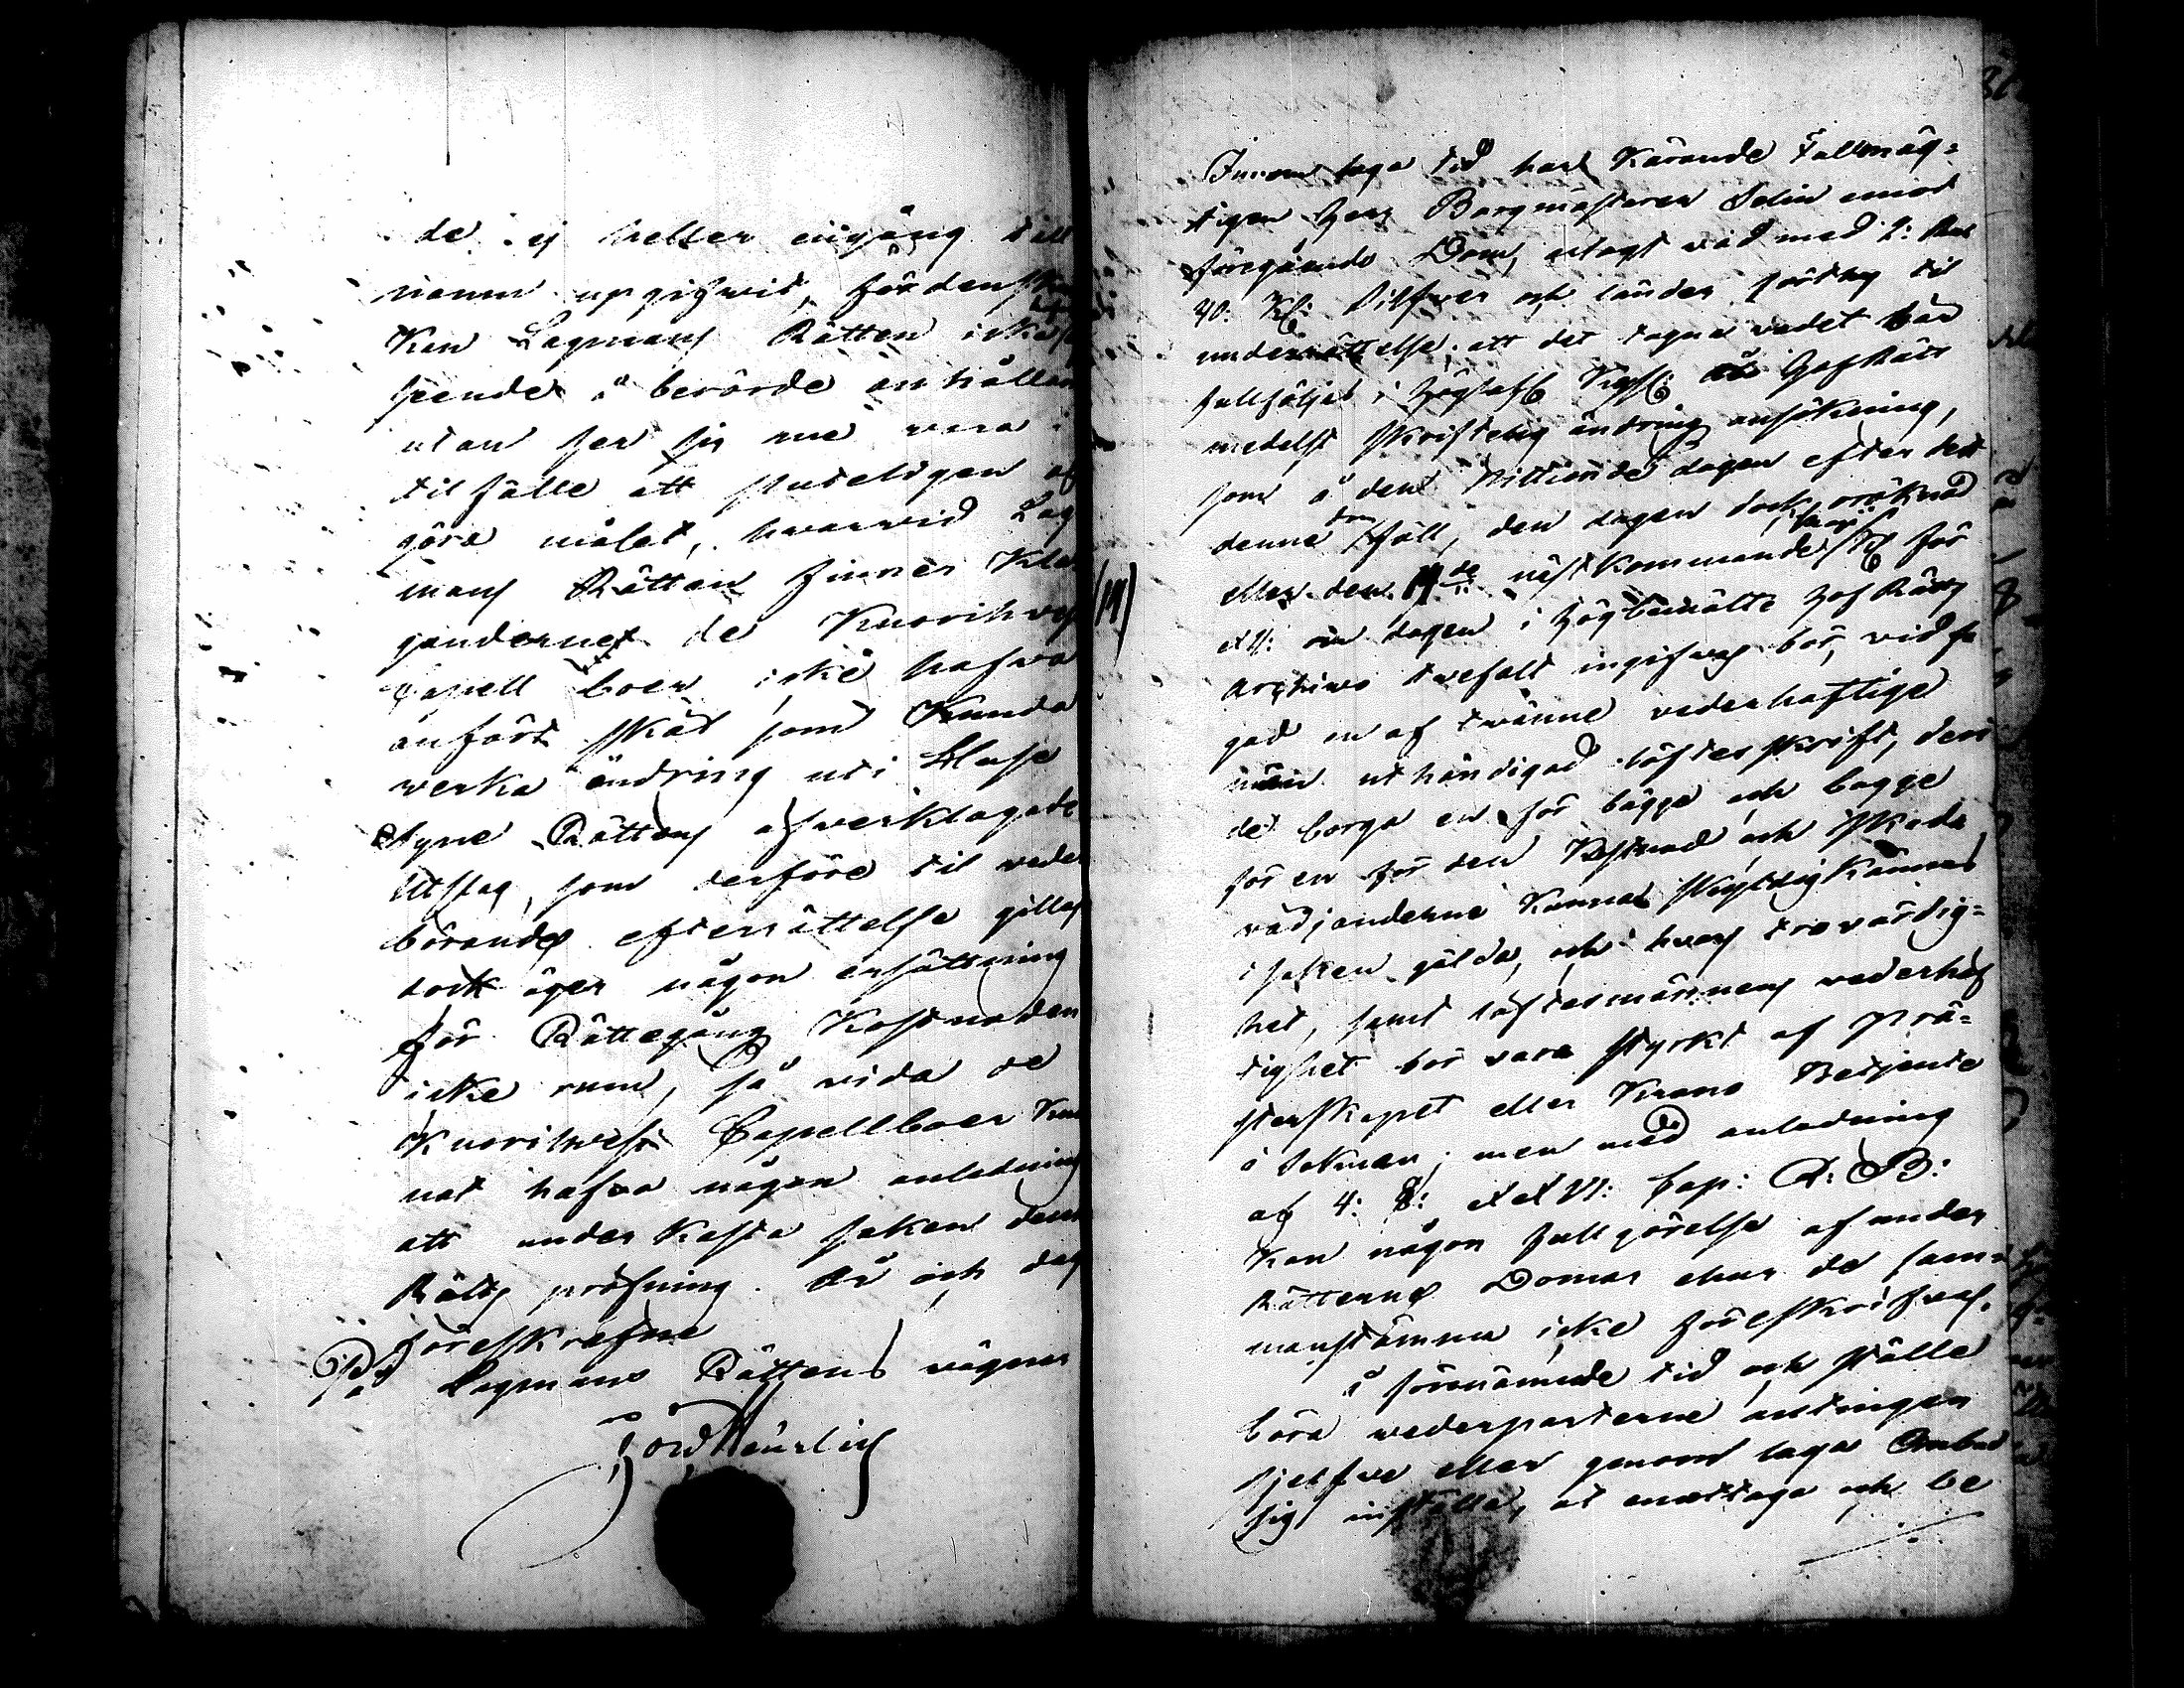 de ej heller engång till
namn upgifwit, för den skull
Kan Lagmans Rätten icke
seende å berörde anhållan
utan ser sig nu vara i
tilfälle att sluteligen af
göra målet, hvarvid Lag
mans Rätten finner Kla
ganderne de Knorihvesi
Capell boer icke hafwa
anfört skäl som Kunna
verka ändring uti Ägo
Syne Rättens öfverklagade
Utslag, som derföre til veder
börandes efterrättelse gillas
dock äger någon ersättning
för Rättegångs Kostnaden
icke rum, så vida de
Knorihvesi Capellboer Kun
nat hafva någon anledning
att underkasta saken denna
Rätts pröfning. År och dag
föreskrefne
På Lagmans Rättens vägnar
Inom laga tid har Kärande Fullmäg=
tigen Herr Borgmästaren Selin emot
föregående Dom, erlagt vad med 2: Rub
40: Kop: Silfwer och länder fördag til
underrättelse, att det tagne vadet bör
fullföljas i Höglofl Kejserl: HofRätt
medelst skriftelig ändrings ansökning,
som å den Nittionde dagen efter det
denna dom föll, den dagen dock oräknad
eller den 19de nästkommande för
kl: om dagen i Högbemälte HofRätts
Archivo twefalt ingifwas bör, vid fo
gad en af twänne vederhäftige
män uthändigad löftesskrift, deri
de borga en för bägge och bägge
för en för den Kostnad och Skada
vädjanderne Kunna skyldig Kännas
i saken gälda, och hvars trovärdig=
het, samt löftesmännens vederhäf
tighet bör vara styrkt af Prä=
sterskapet eller Krono Betjente
å orten; men med anledning
af 4: §: XXVI: Cap: R: B:
Kan någon fullgörelse af under
Rätternes Domar eller de sam=
manstämma icke föreskrifwas.
å förenämnde tid och ställe
böra wederparterne antingen
sjelfwe eller genom laga Ombud
sig inställa, at emottaga och be